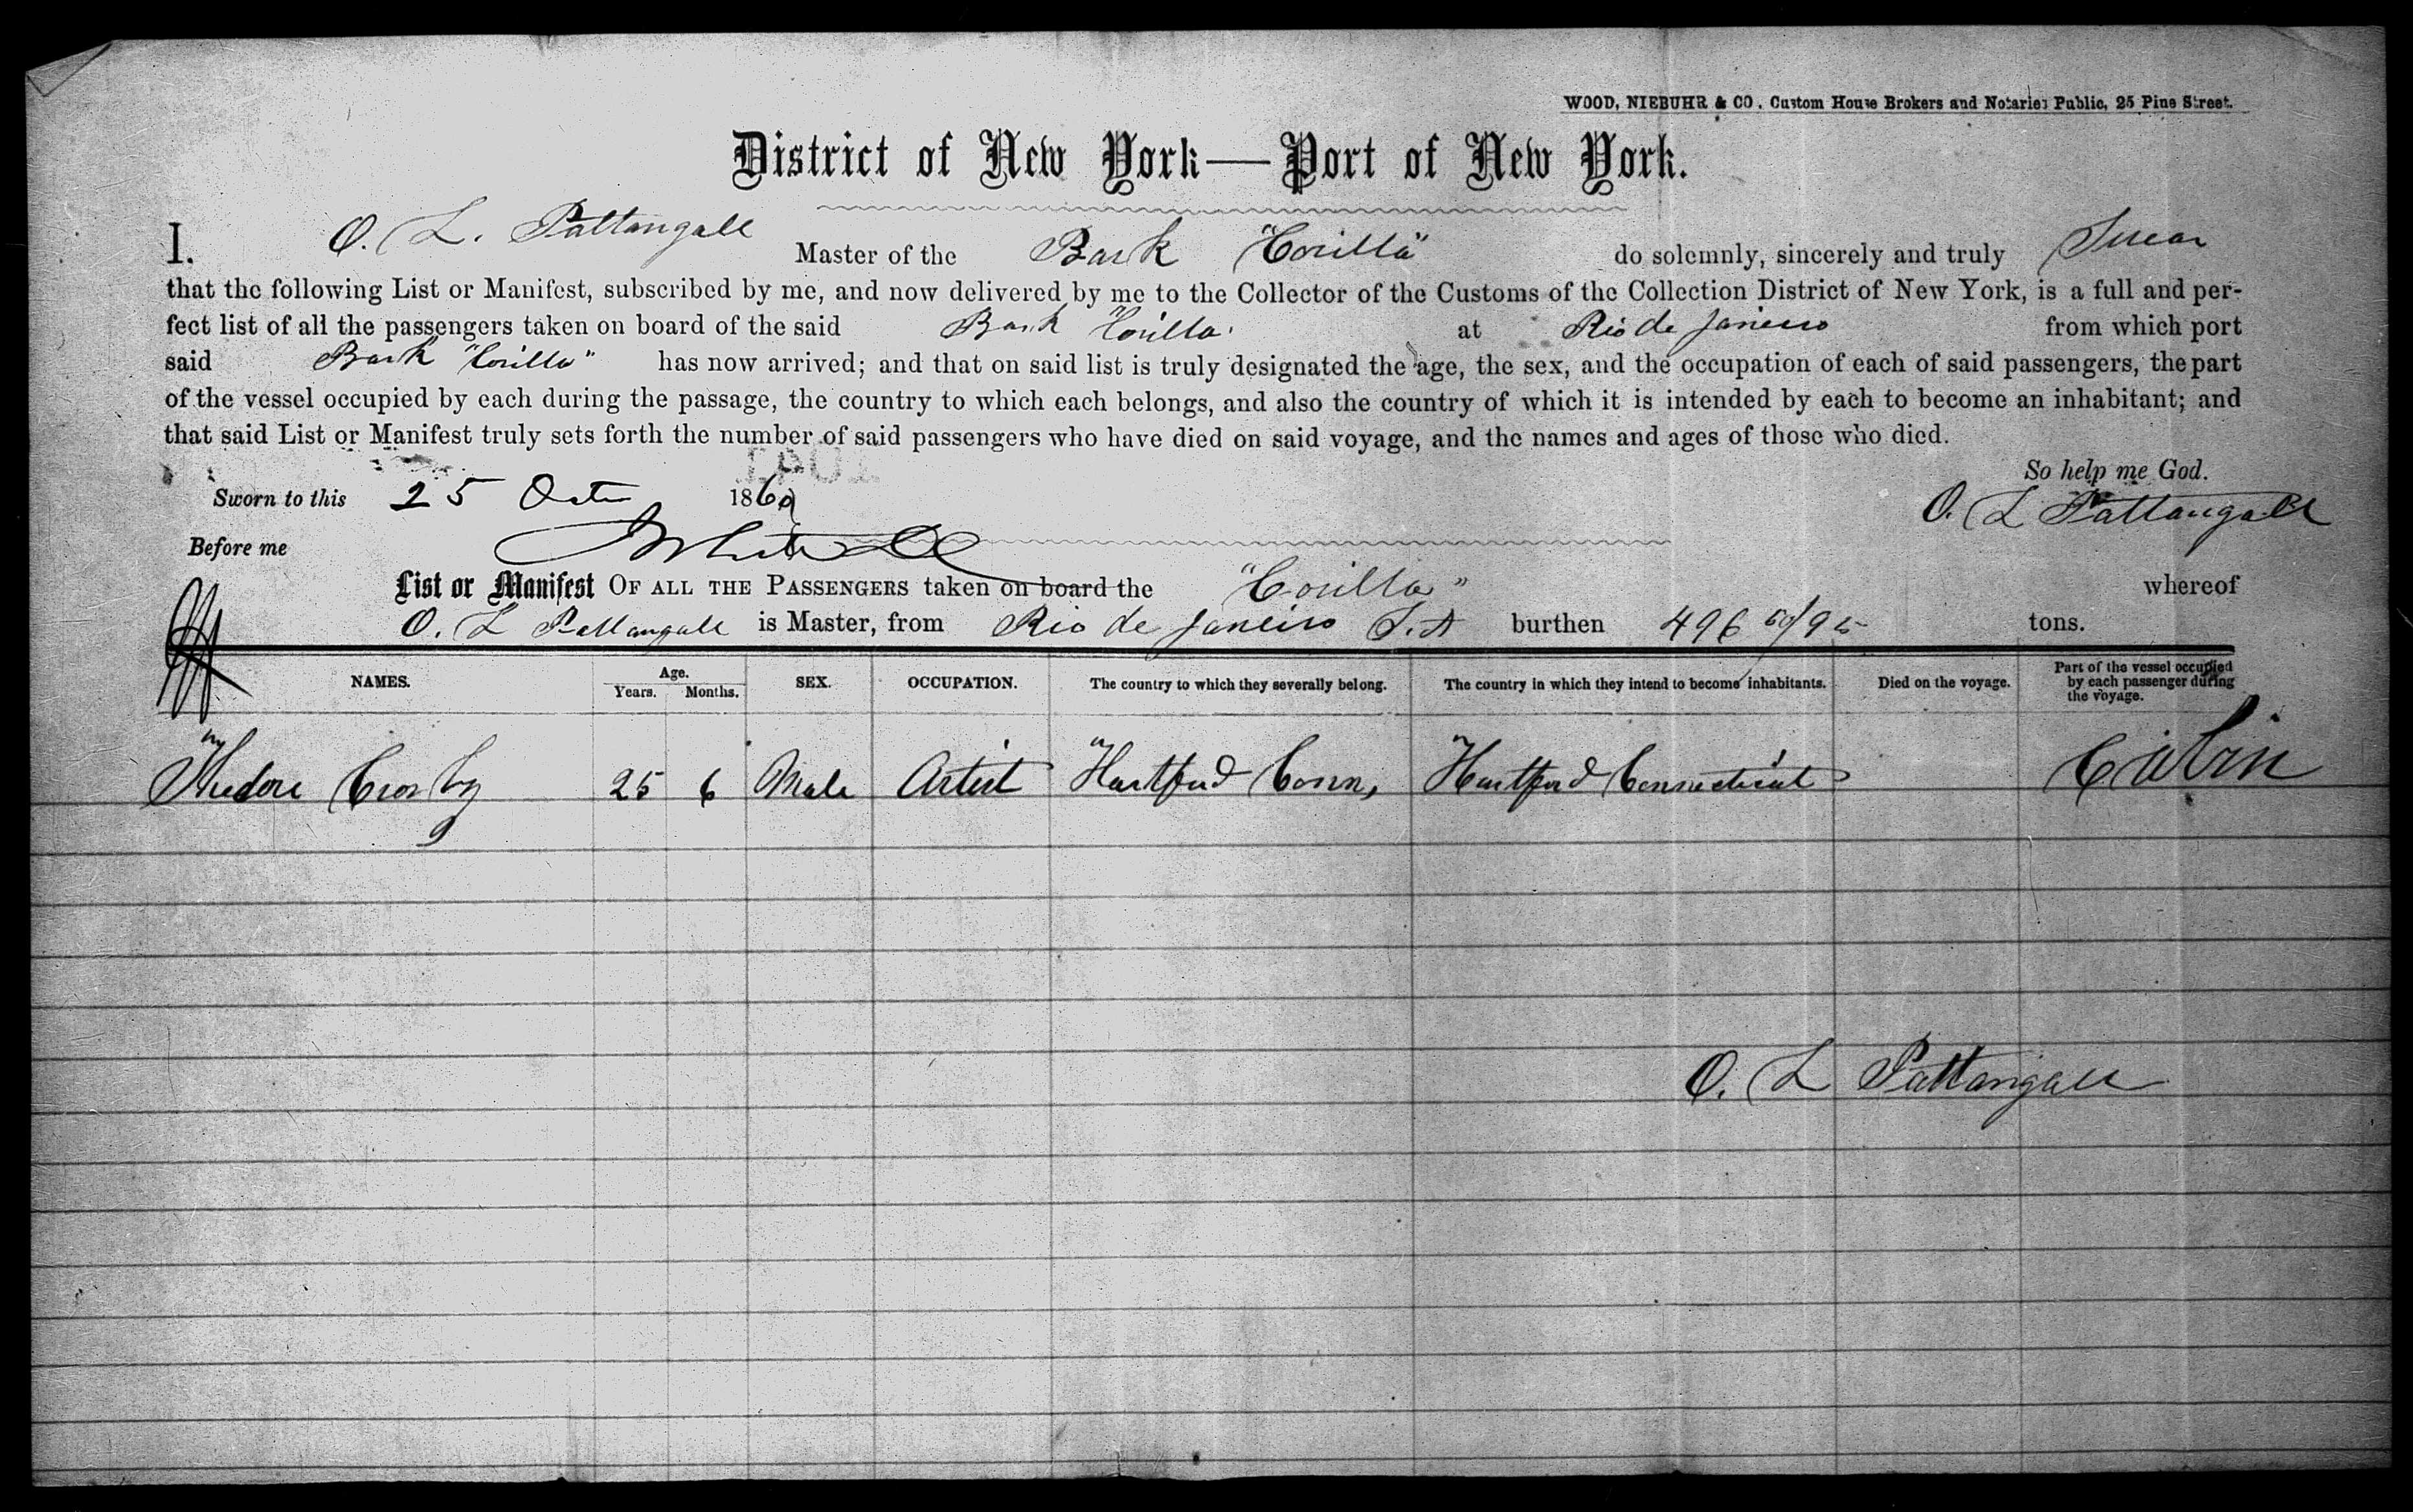 WOOD, NIEBUHR & CO. Custom House Brokers and Notaries Public, 25 Pine Street.
District of New York—Port of New York.
I. O. L. Pattangall Master of the Bark "Corilla" do solemnly, sincerely and truly Swear
that the following List or Manifest, subscribed by me, and now delivered by me to the Collector of the Customs of the Collection District of New York, is a full and per-
fect list of all the passengers taken on board of the said Bark "Corilla" at Rio de Janeiro from which port
said Bark "Corilla" has now arrived; and that on said list is truly designated the age, the sex, and the occupation of each of said passengers, the part
of the vessel occupied by each during the passage, the country to which each belongs, and also the country of which it is intended by each to become an inhabitant; and
that said List or Manifest truly sets forth the number of said passengers who have died on said voyage, and the names and ages of those who died.
So help me God.
Sworn to this 25 Octr 1860 O. L Pattangall
Before me
List or Manifest OF ALL THE PASSENGERS taken on board the "Corilla" whereof
O. L Pattangall is Master, from Rio de Janeiro S.A burthen 496 50/95 tons.
NAMES. Age. Years. Months. SEX. OCCUPATION. The country to which they severally belong. The country in which they intend to become inhabitants. Died on the voyage. Part of the vessel occupied by each passenger during the voyage.
Thedore Crosby 25 6 Male Artist Hartford Conn, Hartford Connecticut Cabin
O. L Pattangall